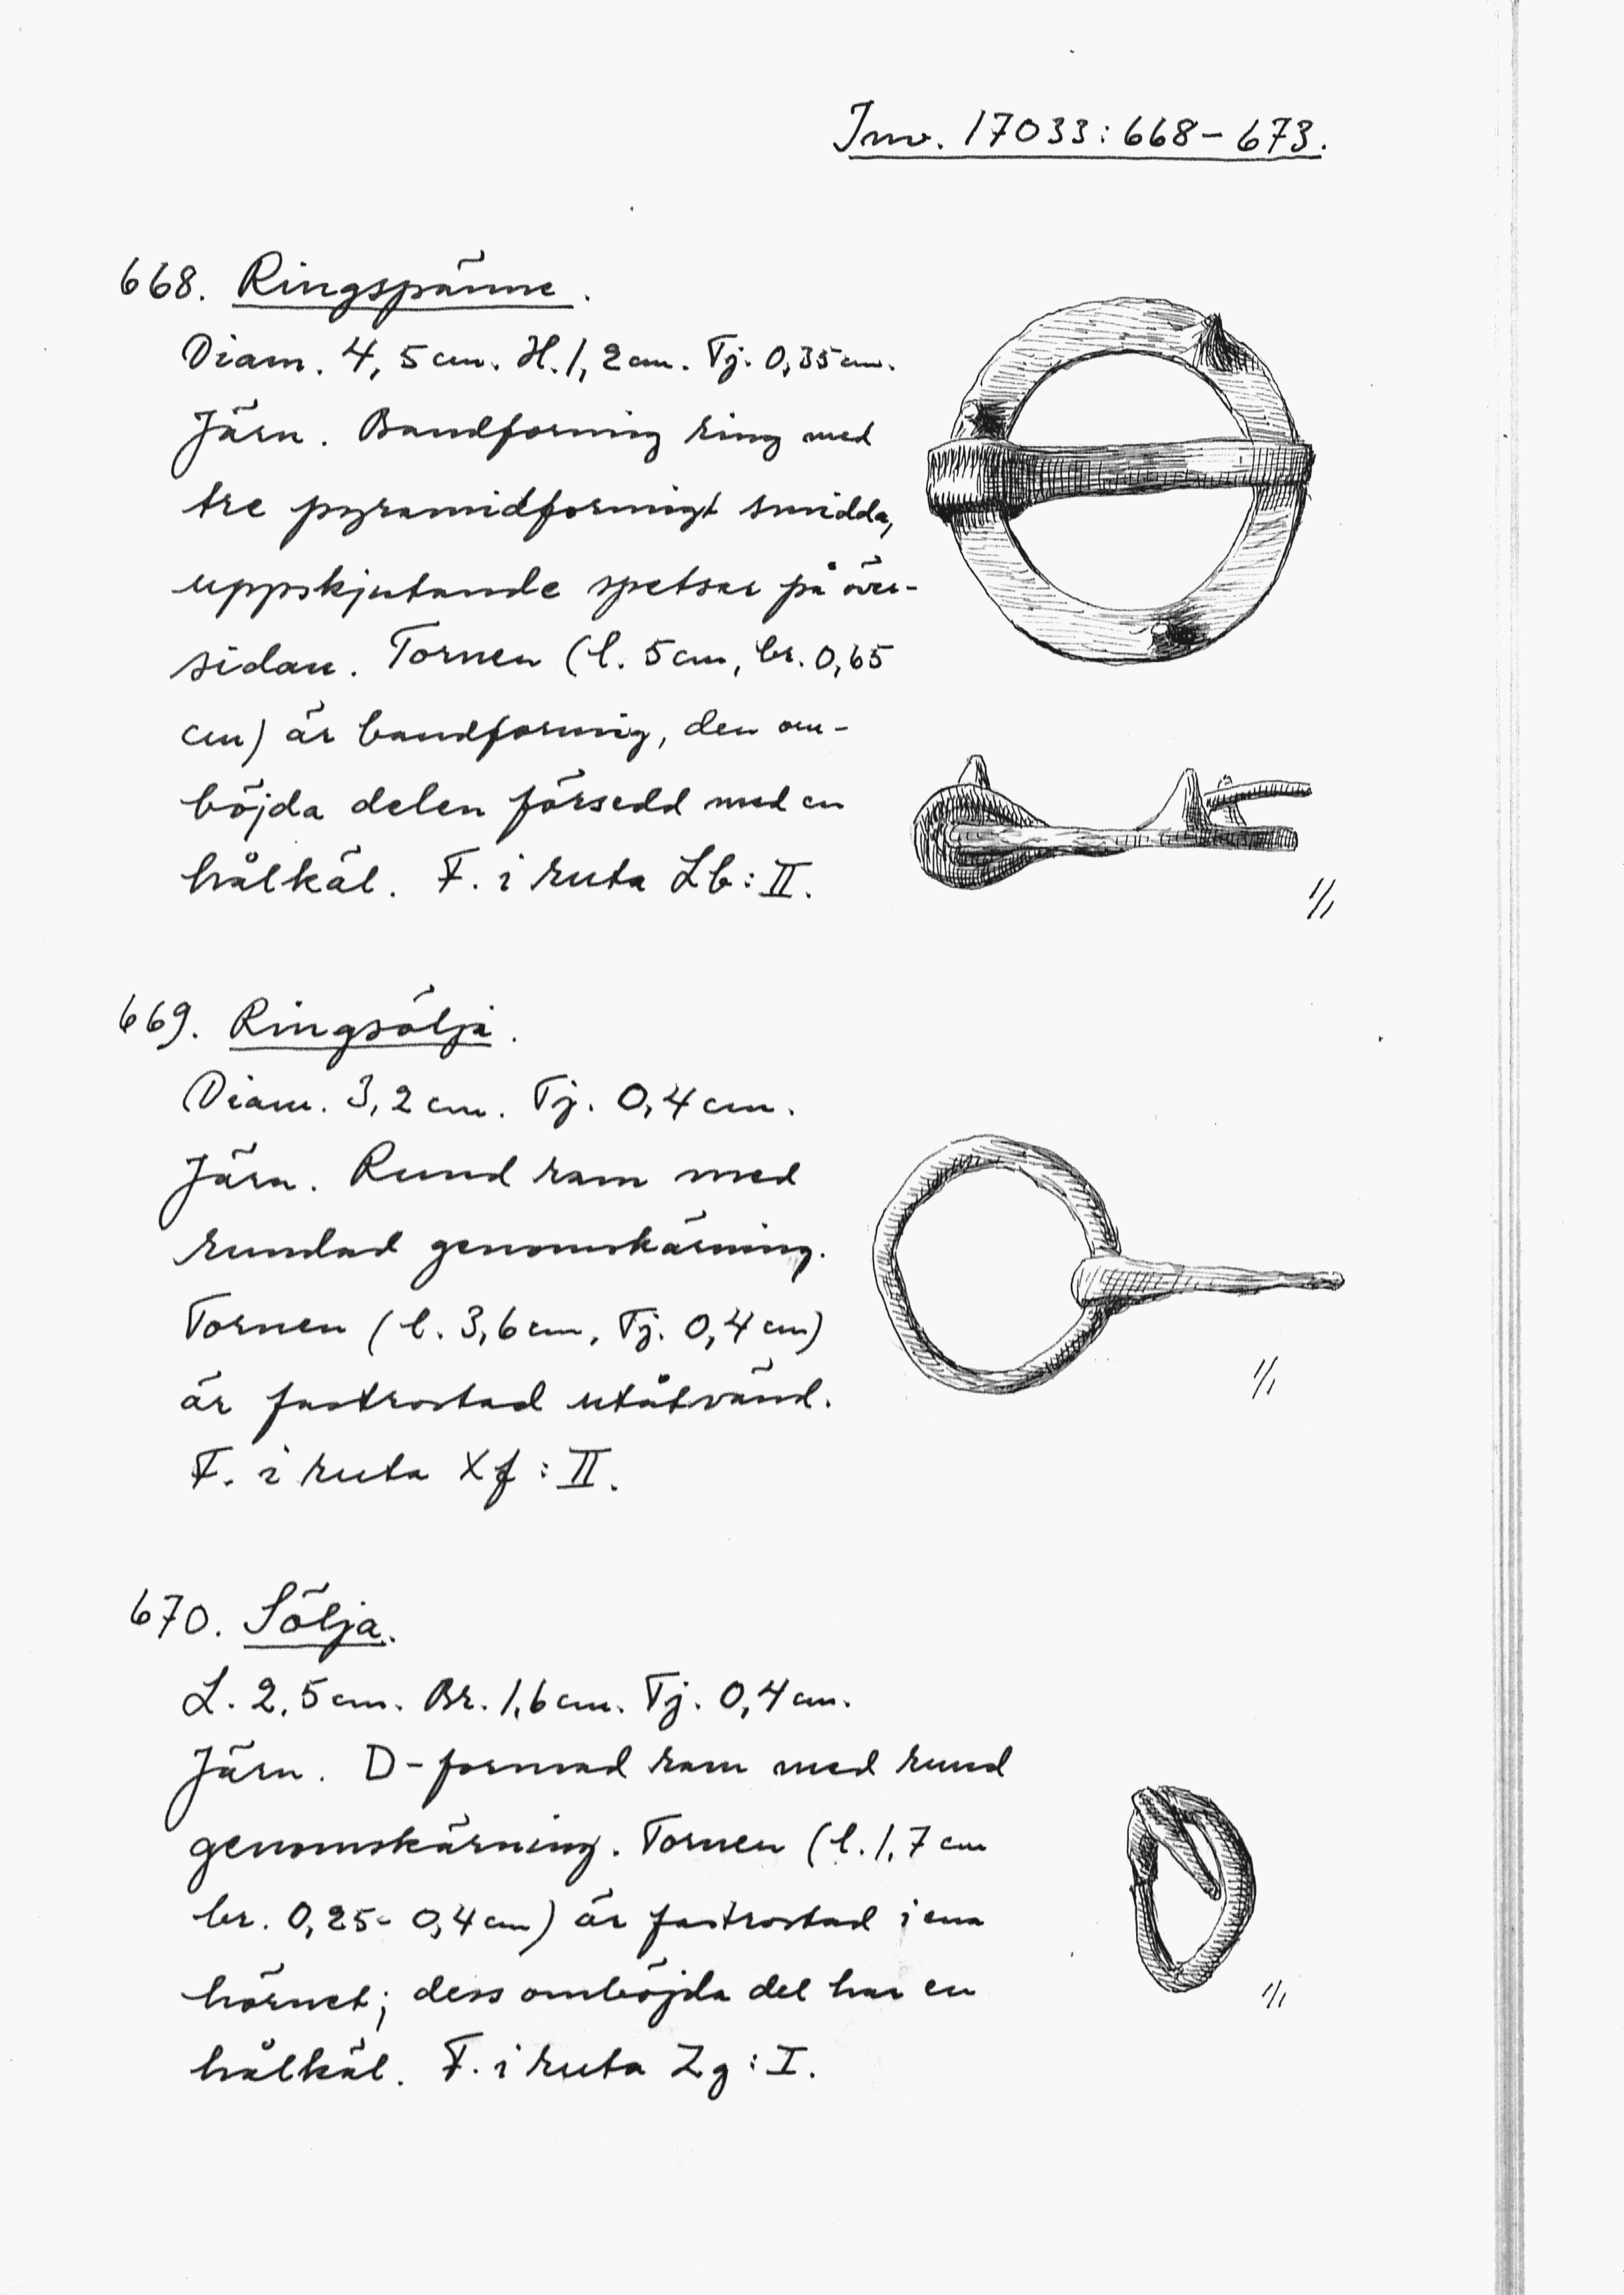 Inv. 17033:668-673.
668. Ringspänne.
Diam. 4,5 cm. H. 1,2 cm. Tj. 0,35 cm.
Järn. Bandformig ring med
tre pyramidformigt smidda,
uppskjutande spetsar på över-
sidan. Tornen (l. 5 cm, br. 0,65
cm) är bandformig, den om-
böjda delen försedd med en
hålkäl. F. i ruta Lb:II.
1/1
669. Ringsölja.
Diam. 3,2 cm. Tj. 0,4 cm.
Järn. Rund ram med
rundad genomskärning.
Tornen (l. 3,6 cm, Tj. 0,4 cm)
är fastrostad utåtvänd.
1/1
F. i ruta Xf:II.
670. Sölja.
L. 2,5 cm. Br. 1,6 cm. Tj. 0,4 cm.
Järn. D-formad ram med rund
genomskärning. Tornen (l. 1,7 cm
br. 0,25-0,4 cm) är fastrostad i ena
hörnet; dess omböjda del har en
1/1
hålkäl. F. i ruta Zg:I.